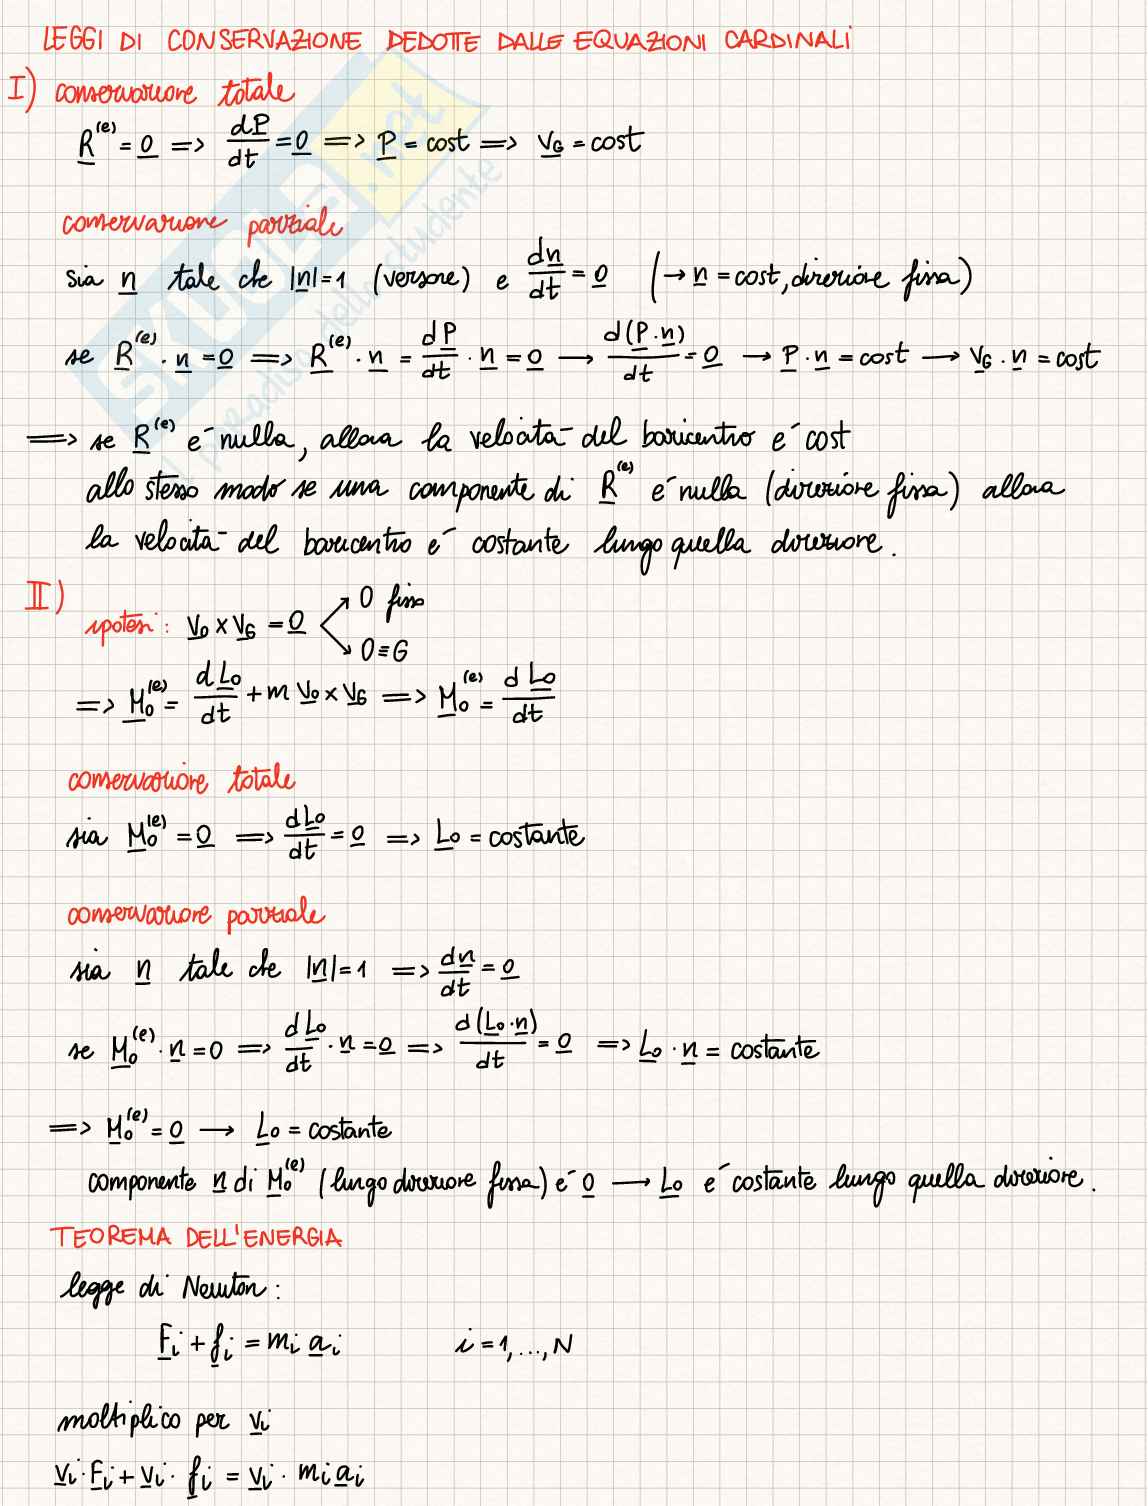 LEGGI DI CONSERVAZIONE DEDOTTE DALLE EQUAZIONI CARDINALI
I) conservazione totale
R^(e) = 0 => dP/dt = 0 => P = cost => v_G = cost
conservazione parziale
sia n tale che |n|=1 (versore) e dn/dt = 0 (→ n = cost, direzione fissa)
se R^(e) · n = 0 => R^(e) · n = dP/dt · n = 0 → d(P·n)/dt = 0 → P · n = cost → v_G · n = cost
=> se R^(e) è nulla, allora la velocità del baricentro è cost
allo stesso modo se una componente di R^(e) è nulla (direzione fissa) allora
la velocità del baricentro è costante lungo quella direzione.
II)
ipotesi: v_O × v_G = 0
O fisso
O ≡ G
=> M_O^(e) = dL_O/dt + m v_O × v_G => M_O^(e) = dL_O/dt
conservazione totale
sia M_O^(e) = 0 => dL_O/dt = 0 => L_O = costante
conservazione parziale
sia n tale che |n|=1 => dn/dt = 0
se M_O^(e) · n = 0 => dL_O/dt · n = 0 => d(L_O·n)/dt = 0 => L_O · n = costante
=> M_O^(e) = 0 → L_O = costante
componente n di M_O^(e) (lungo direzione fissa) è 0 → L_O è costante lungo quella direzione.
TEOREMA DELL'ENERGIA
legge di Newton:
F_i + f_i = m_i a_i i = 1, ..., N
moltiplico per v_i
v_i · F_i + v_i · f_i = v_i · m_i a_i
SKUOLA.net
il paradiso dello studente